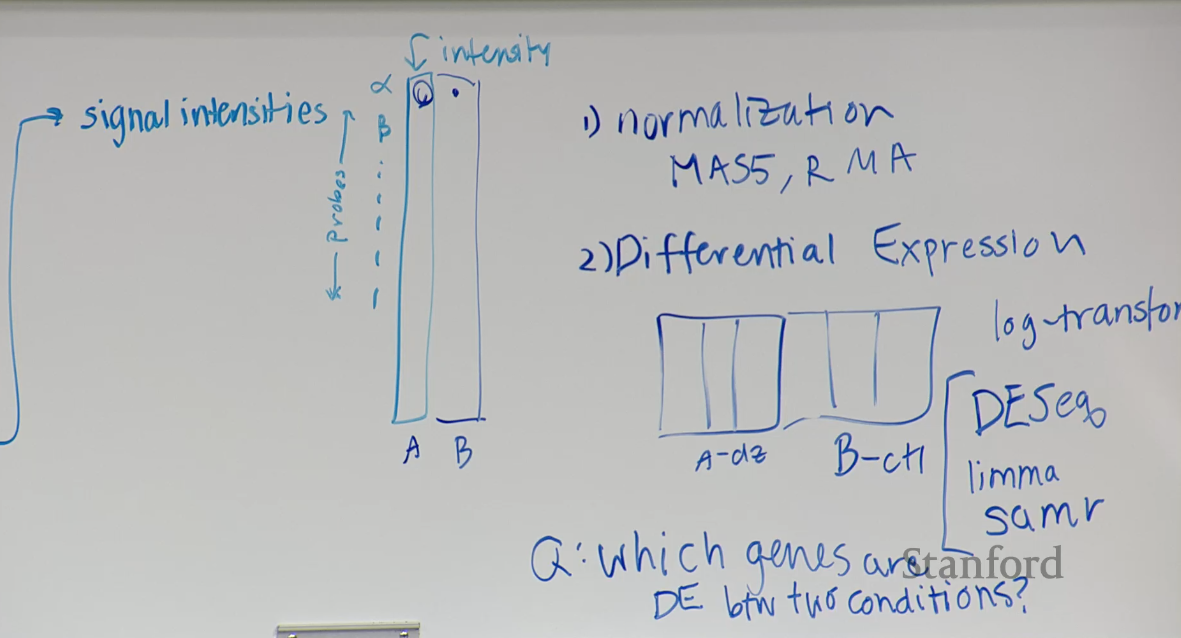 intensity
signal intensities
α
β
Probes
A B
1) normalization
MAS5, RMA
2) Differential Expression
log-transfor
A-dz B-ctl
DESeq
limma
samr
Q: which genes are
DE btw two conditions?
Stanford